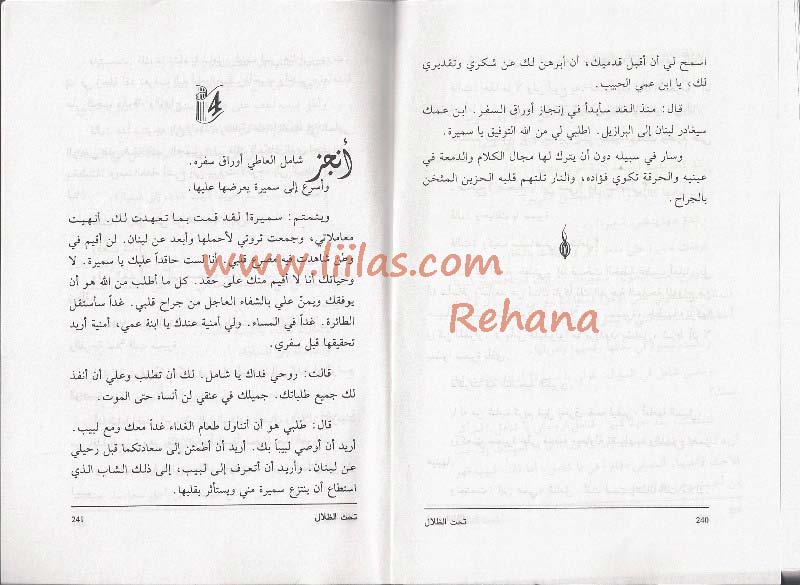 اسمح لي أن أقبل قدميك، أن أبرهن لك عن شكري وتقديري
لك، يا ابن عمي الحبيب.
قال: منذ الغد سأبدأ في إنجاز أوراق السفر. ابن عمك
سيغادر لبنان إلى البرازيل. اطلبي لي من الله التوفيق يا سميرة.
وسار في سبيله دون أن يترك لها مجال الكلام والدمعة في
عينيه والحرقة تكوي فؤاده، والنار تلتهم قلبه الحزين المثخن
بالجراح.
240
تحت الظلال
أنجز شامل العاطي أوراق سفره.
وأسرع إلى سميرة يعرضها عليها.
ويتمتم: سميرة! لقد قمت بما تعهدت لك. أنهيت
معاملاتي، وجمعت ثروتي لأحملها وأبعد عن لبنان. لن أقيم في
وطن شاهدت فيه مصرع قلبي. أنا لست حاقداً عليك يا سميرة.
وحياتك أنا لا أقيم منك على حقد. كل ما أطلب من الله هو أن
يوفقك ويمنّ علي بالشفاء العاجل من جراح قلبي. غداً سأستقل
الطائرة. غداً في المساء. ولي أمنية عندك يا ابنة عمي، أمنية أريد
تحقيقها قبل سفري.
قالت: روحي فداك يا شامل. لك أن تطلب وعلي أن أنفذ
لك جميع طلباتك. جميلك في عنقي لن أنساه حتى الموت.
قال: طلبي هو أن أتناول طعام الغداء غداً معك ومع لبيب.
أريد أن أوصي لبيباً بك. أريد أن أطمئن إلى سعادتكما قبل رحيلي
عن لبنان. وأريد أن أتعرف إلى لبيب، إلى ذلك الشاب الذي
استطاع أن ينتزع سميرة مني ويستأثر بقلبها.
تحت الظلال
241
www.liilas.com
Rehana